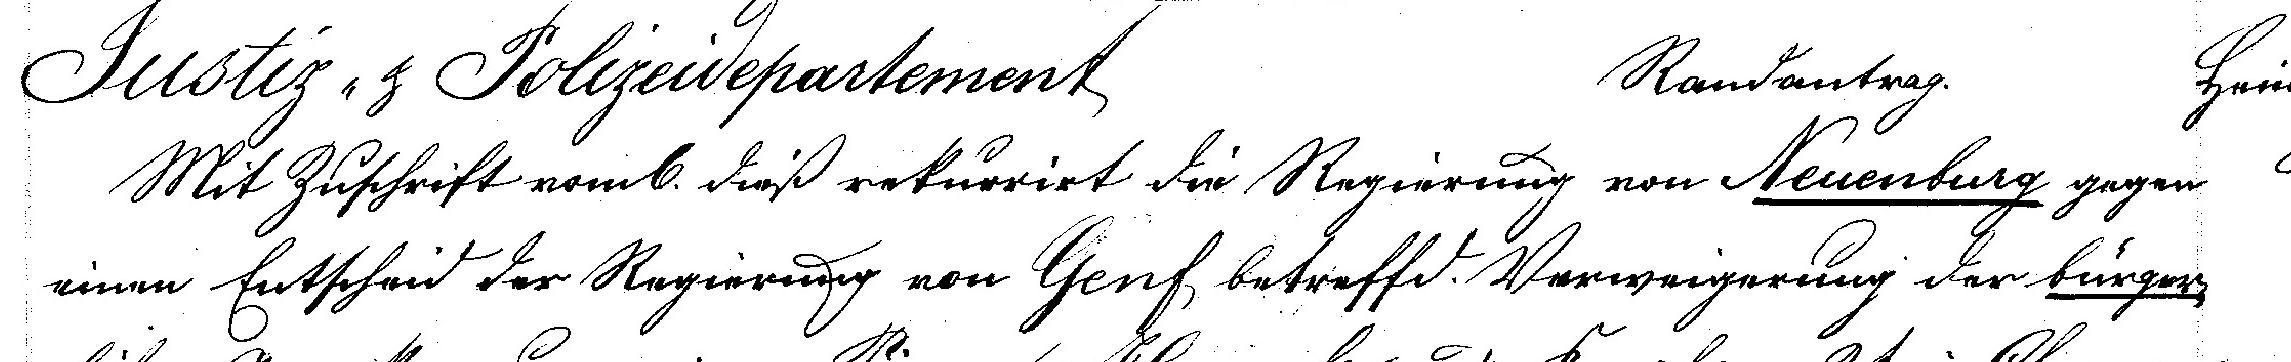 Justiz- & Polizeidepartement Randantrag.
Mit Zuschrift vom 6. dieß rekurrirt die Regierung von Neuenburg gegen
einen Entscheid der Regierung von Genf betreffd. Verweigerung der bürger-